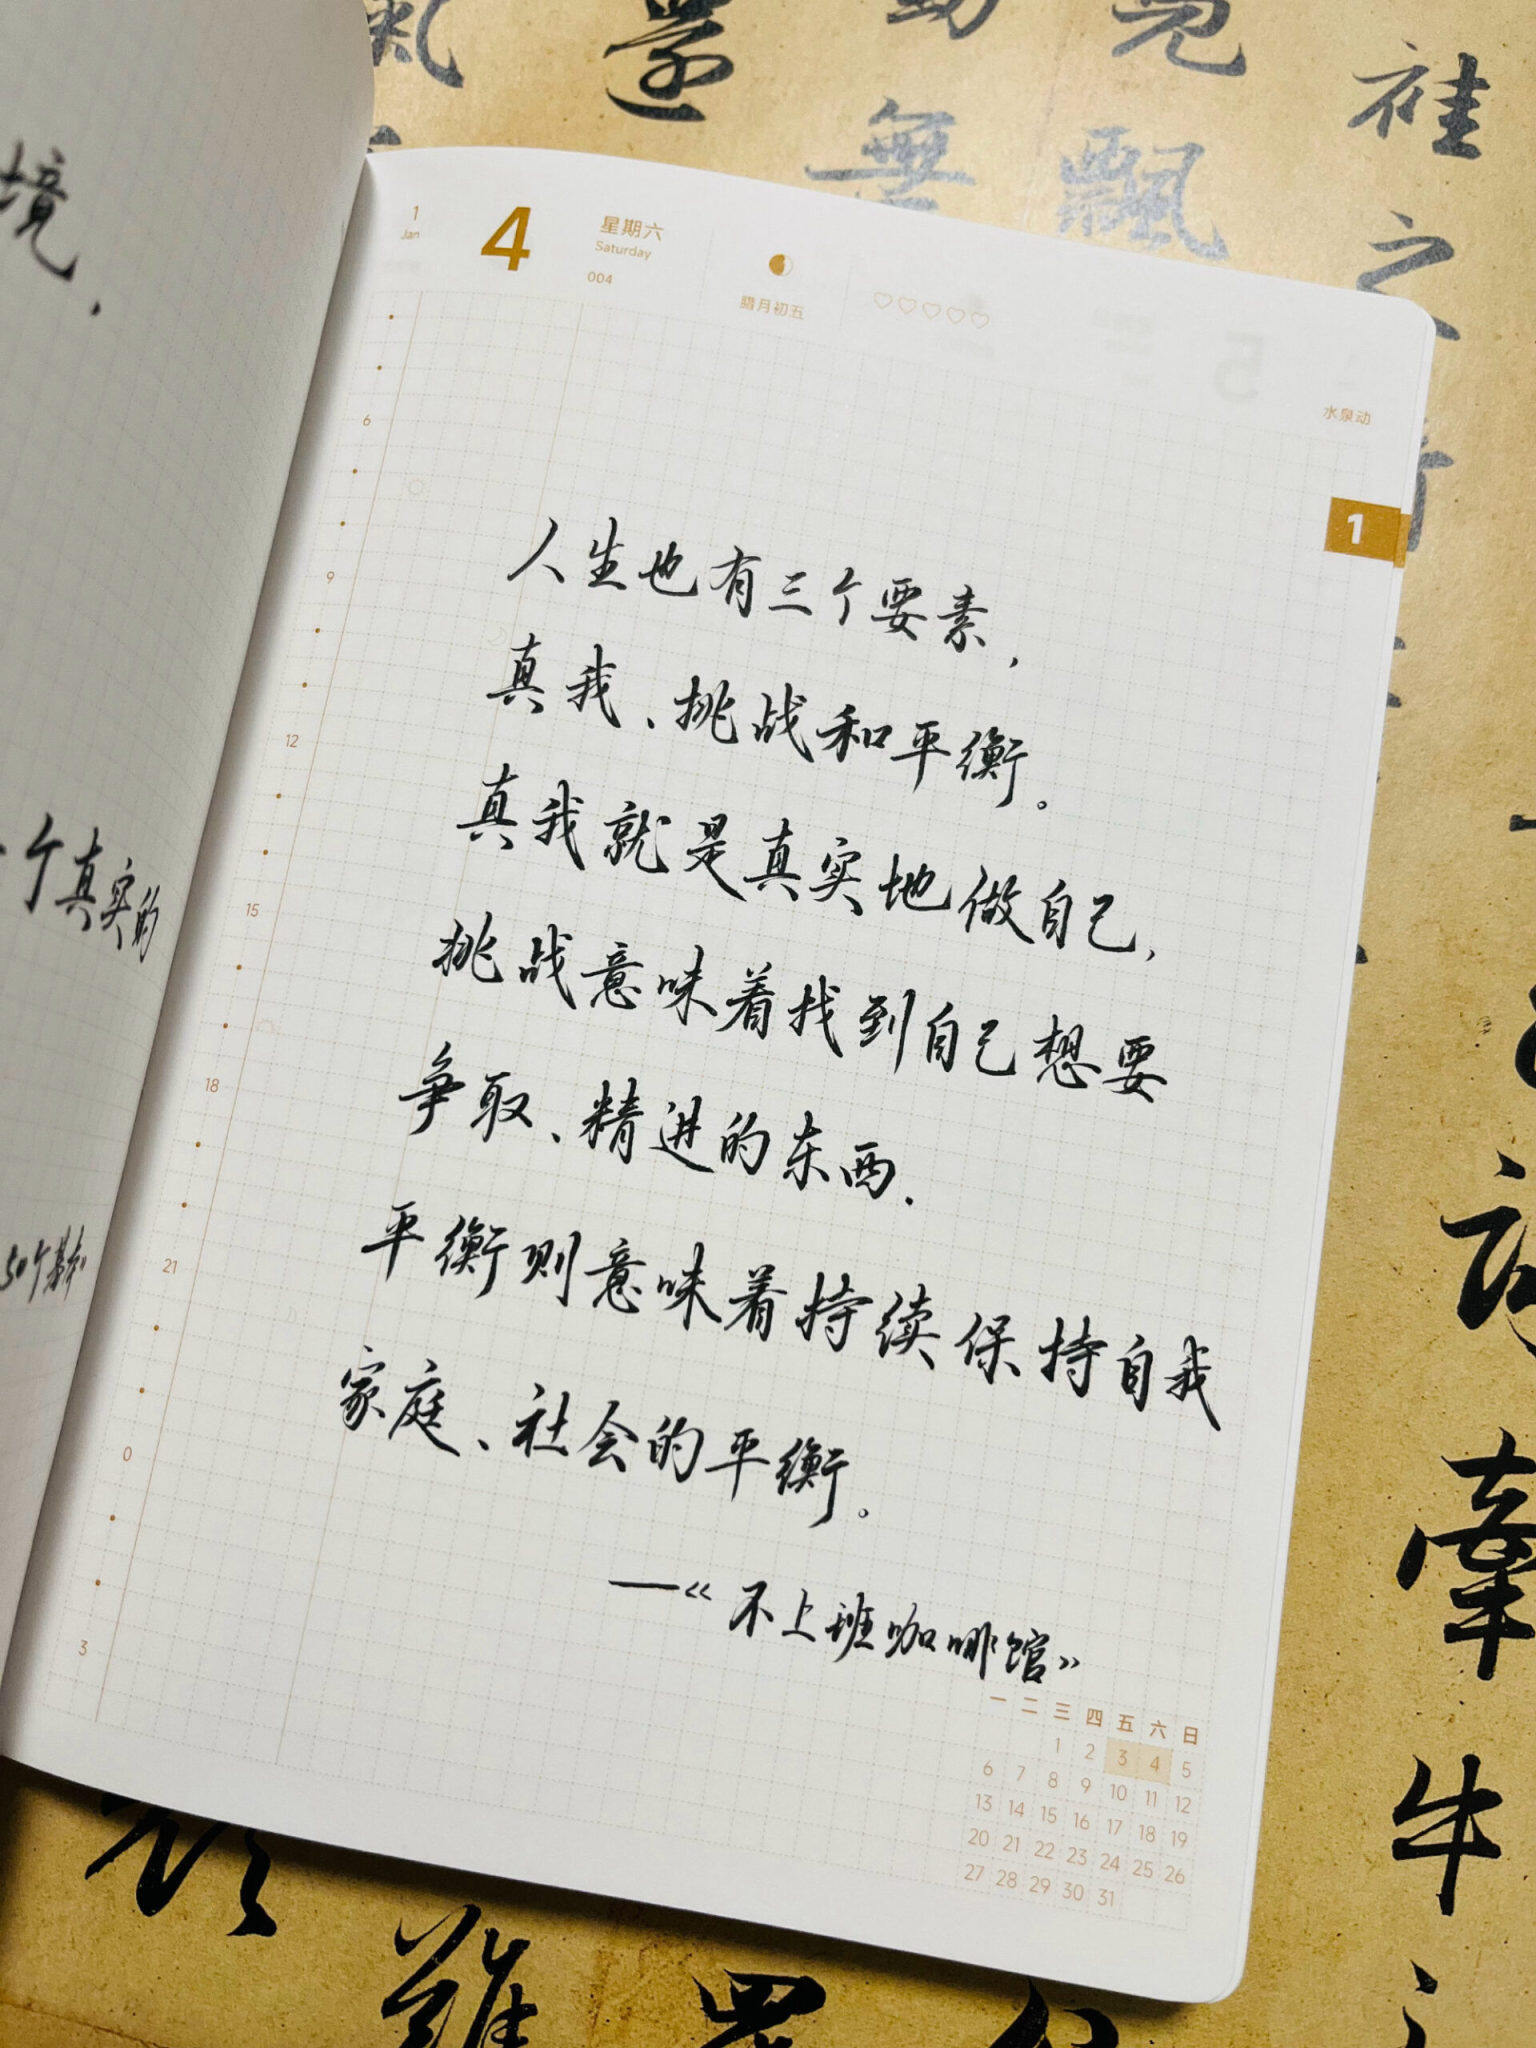 境，
个真实的
50个
1
Jan
4
星期六
Saturday
004
腊月初五
水泉动
1
6
9
12
15
18
21
0
3
人生也有三个要素，
真我、挑战和平衡。
真我就是真实地做自己，
挑战意味着找到自己想要
争取、精进的东西.
平衡则意味着持续保持自我
家庭、社会的平衡。
—《不上班咖啡馆》
一 二 三 四 五 六 日
1 2 3 4 5
6 7 8 9 10 11 12
13 14 15 16 17 18 19
20 21 22 23 24 25 26
27 28 29 30 31
無
飄
袿
之
牽
牛
之
難